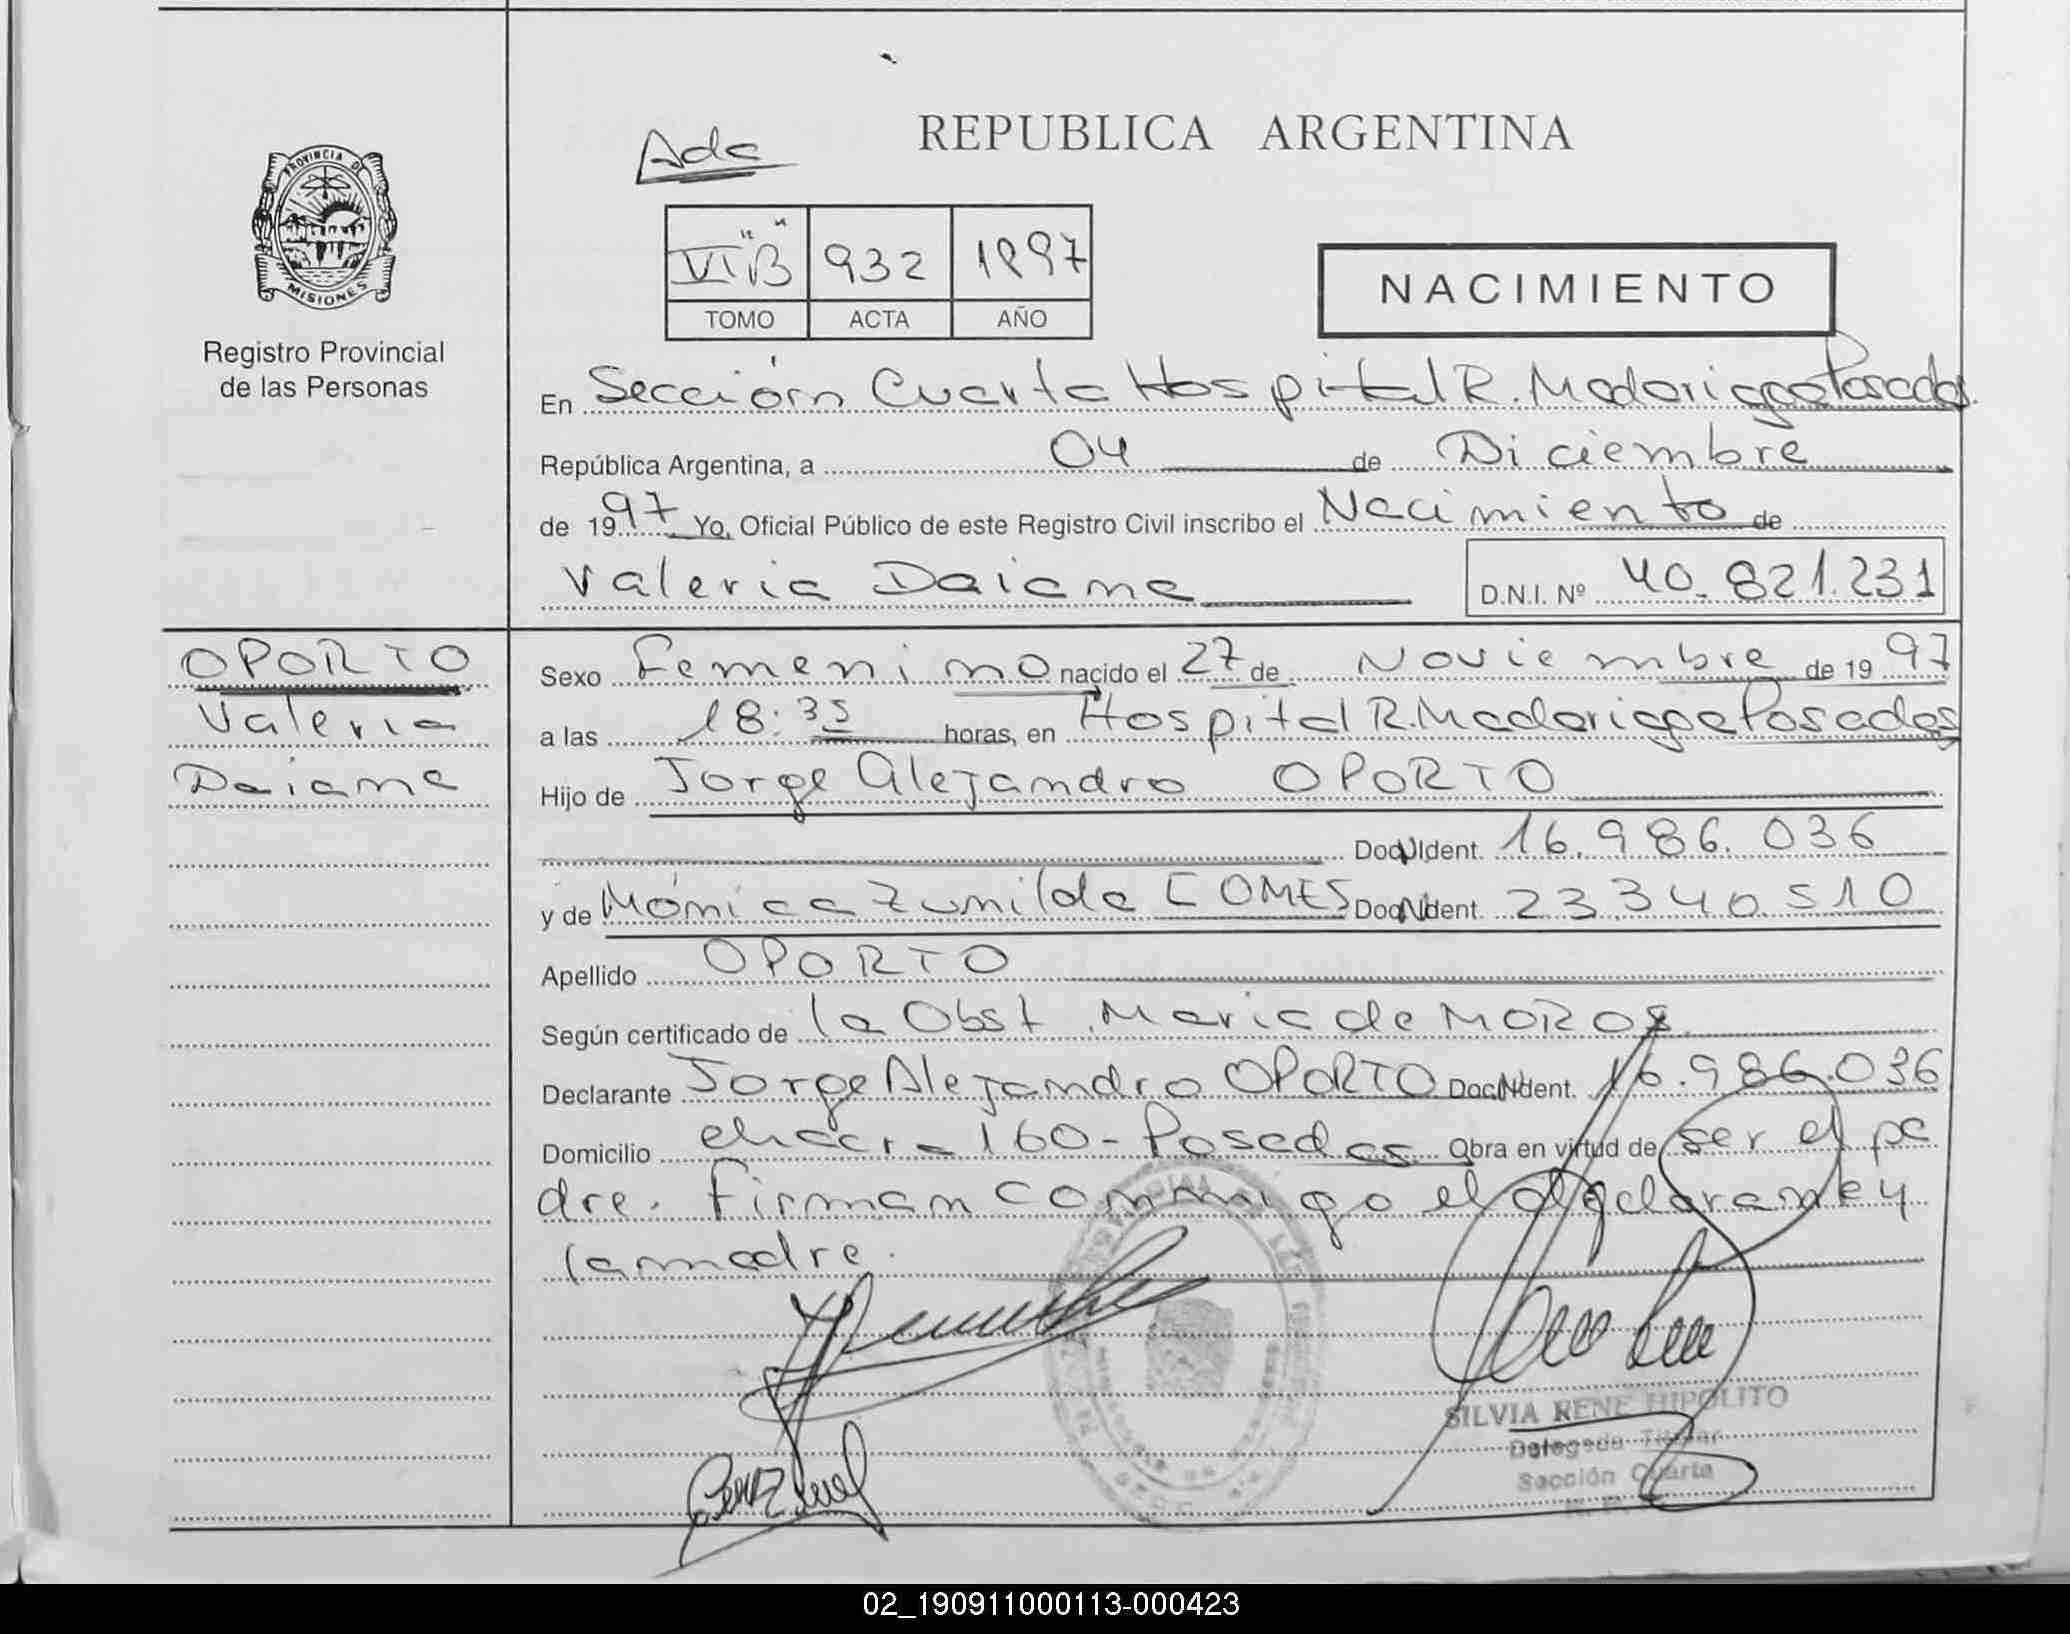 REPUBLICA ARGENTINA
Ada
VI "B" 932 1997
TOMO ACTA AÑO
NACIMIENTO
PROVINCIA DE MISIONES
Registro Provincial
de las Personas
En Sección Cuarta Hospital R. Madariaga Posadas
República Argentina, a 04 de Diciembre
de 1997 Yo, Oficial Público de este Registro Civil inscribo el Nacimiento de
Valeria Daiana D.N.I. Nº 40.821.231
OPORTO
Valeria
Daiana
Sexo Femenino nacido el 27 de Noviembre de 1997
a las 18:35 horas, en Hospital R. Madariaga Posadas
Hijo de Jorge Alejandro OPORTO
Doc. Ident. 16.986.036
y de Mónica Zunilda GOMES Doc. Ident. 23340510
Apellido OPORTO
Según certificado de la Obst. Maria de MOROS
Declarante Jorge Alejandro OPORTO Doc. Ident. 16.986.036
Domicilio chacra 160 - Posadas Obra en virtud de ser el pa
dre. Firman conmigo el declarane y
la madre.
SILVIA RENE HIPOLITO
Delegada Titular
Sección Cuarta
02_190911000113-000423